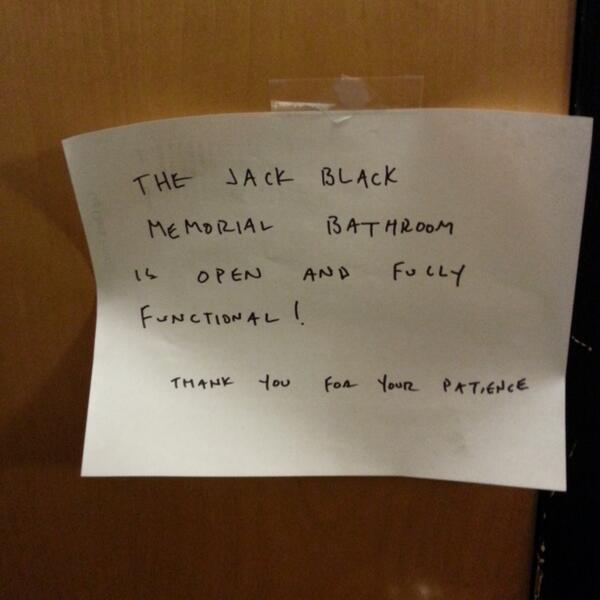 THE JACK BLACK
MEMORIAL BATHROOM
IS OPEN AND FULLY
FUNCTIONAL!
THANK YOU FOR YOUR PATIENCE